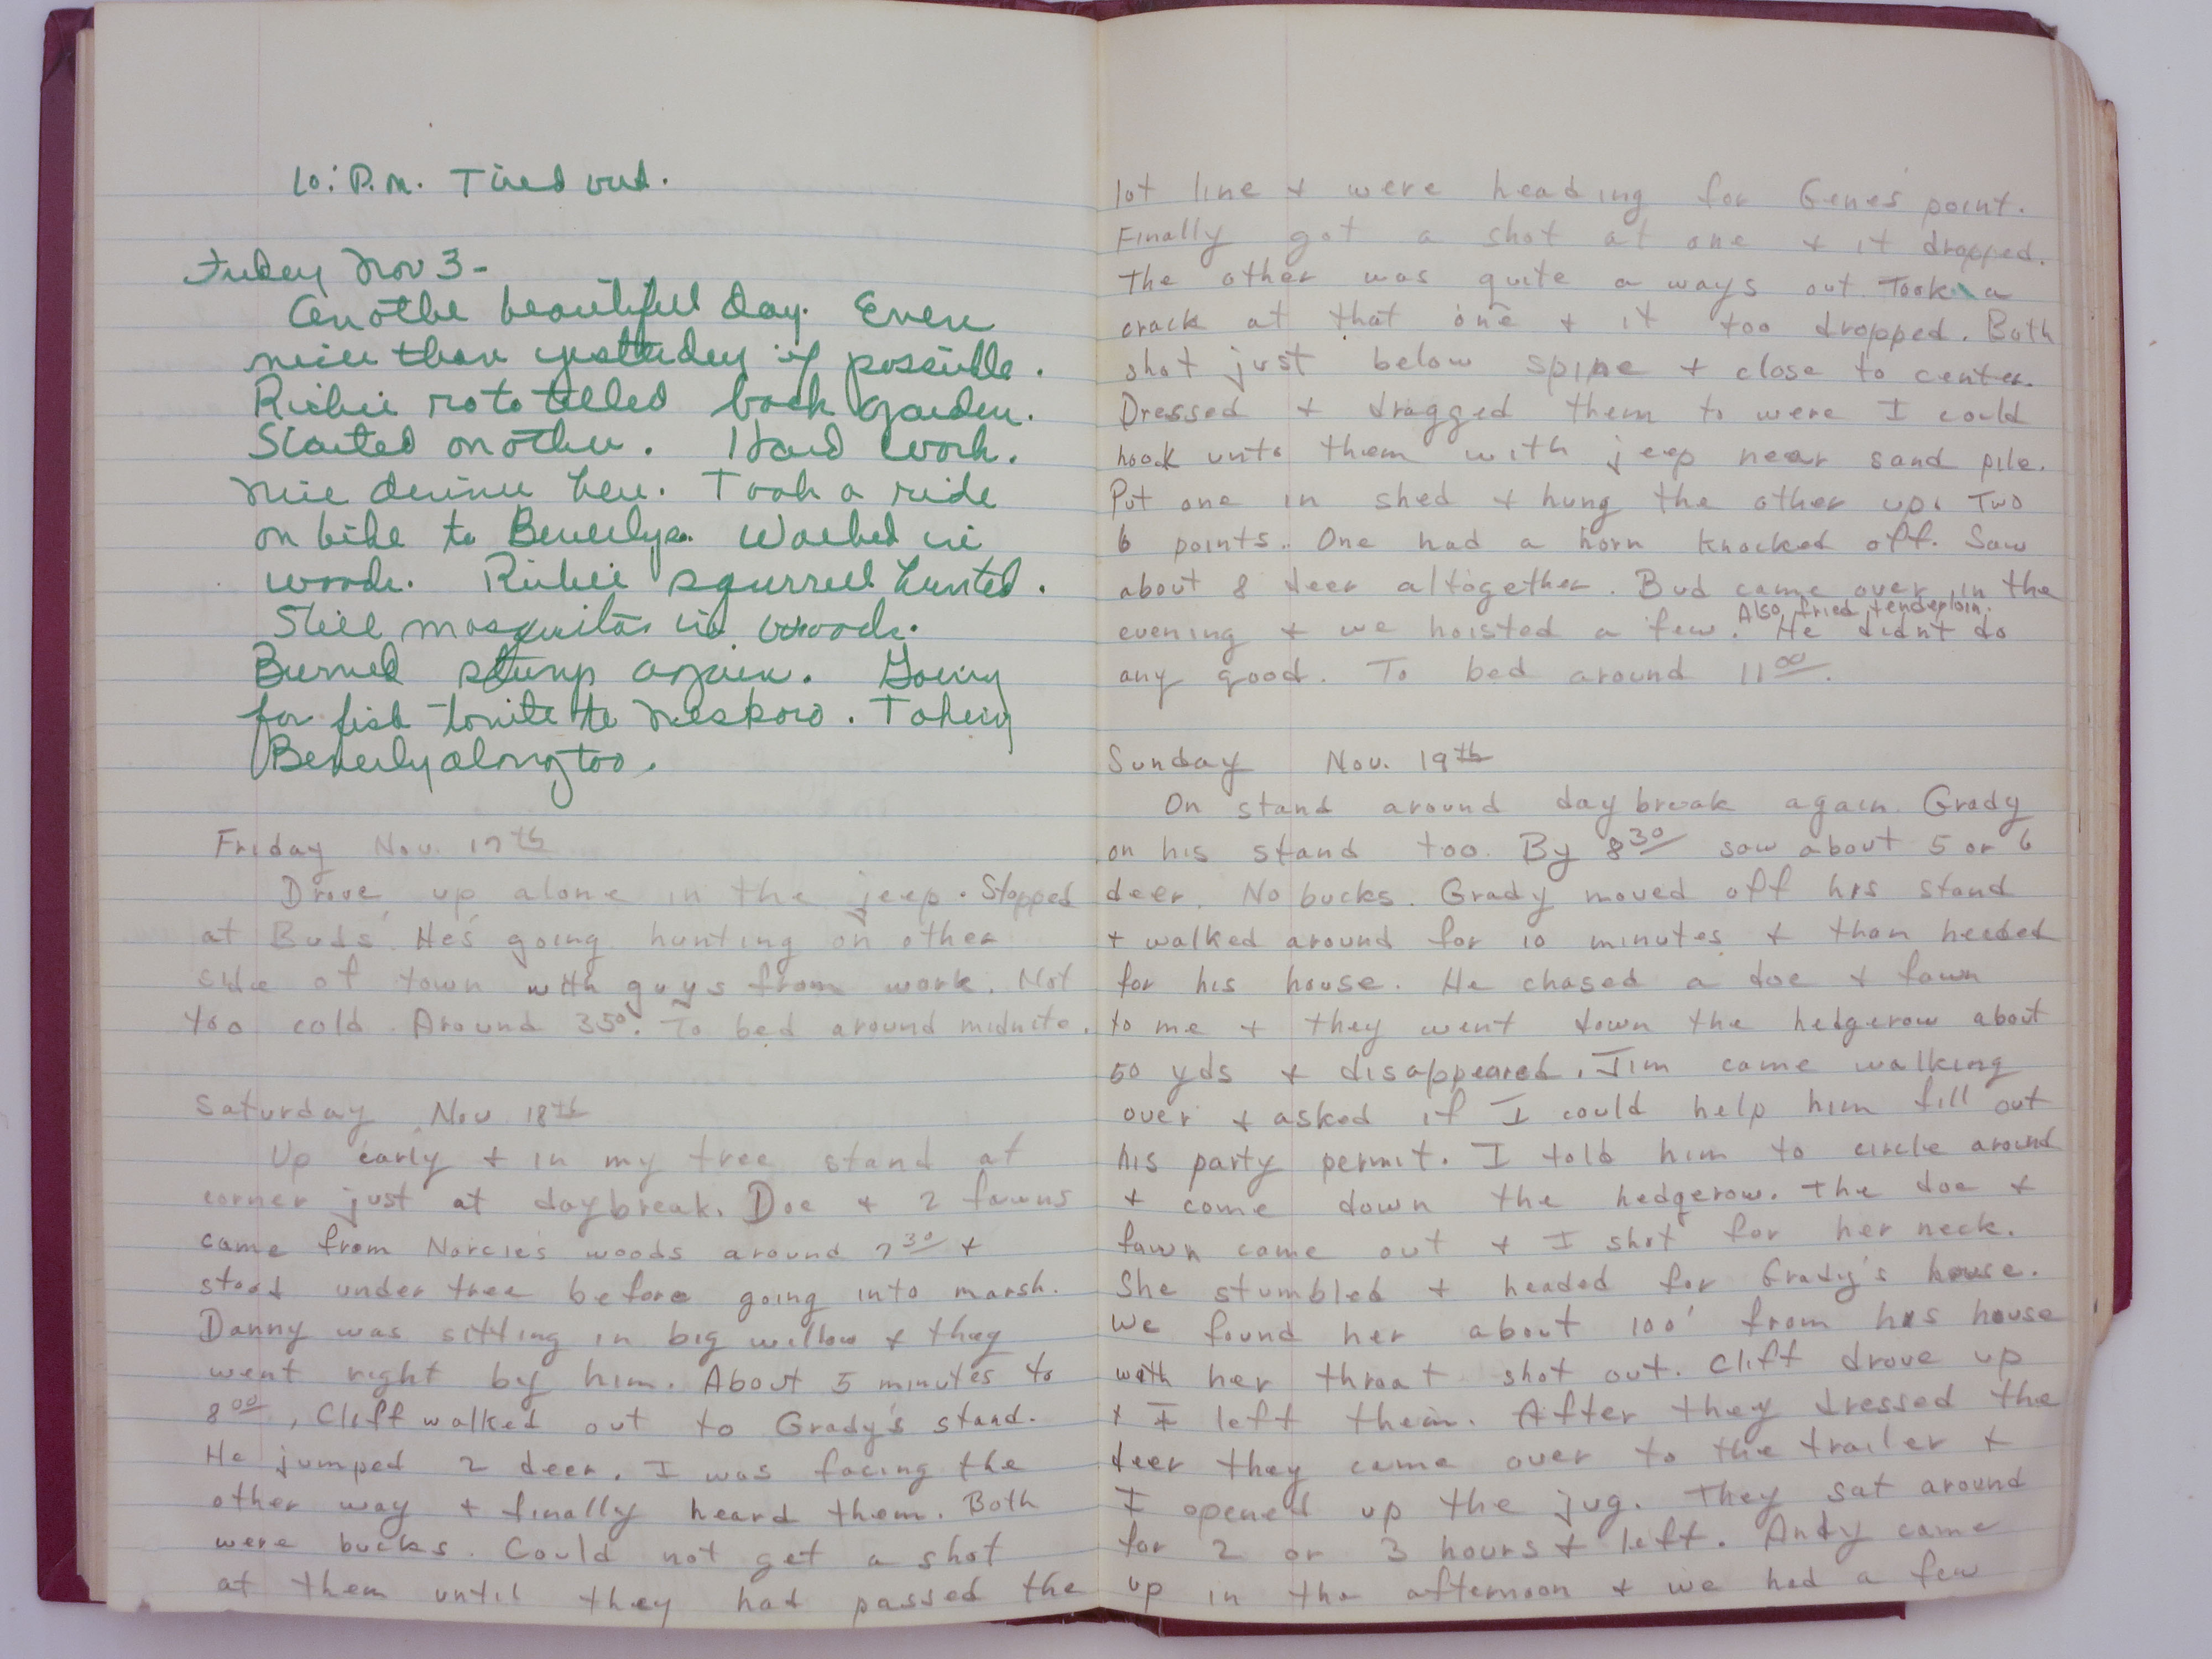 10: P.M. Tired out.
Friday Nov 3-
Another beautiful day. Even
nicer than yesterday if possible.
Richie rototilled back garden.
Started another. Hard work.
Nice dinner here. Took a ride
on bike to Beverlys. Walked in
woods. Richie squirrel hunted.
Still mosquitos in woods.
Burned stump again. Going
for fish tonite to Neskoro. Taking
Beverly along too.
Friday Nov. 17th
Drove up alone in the jeep. Stopped
at Buds. He's going hunting on other
side of town with guys from work. Not
too cold. Around 35°. To bed around midnite.
Saturday Nov 18th
Up early + in my tree stand at
corner just at daybreak. Doe + 2 fawns
came from Narcie's woods around 7 30 +
stood under tree before going into marsh.
Danny was sitting in big willow + they
went right by him. About 5 minutes to
8 00, Cliff walked out to Grady's stand.
He jumped 2 deer. I was facing the
other way + finally heard them. Both
were bucks. Could not get a shot
at them until they had passed the
lot line + were heading for Genes point.
Finally got a shot at one + it dropped.
The other was quite a ways out. Took a
crack at that one + it too dropped. Both
shot just below spine + close to center.
Dressed + dragged them to were I could
hook unto them with jeep near sand pile.
Put one in shed + hung the other up. Two
6 points. One had a horn knocked off. Saw
about 8 deer altogether. Bud came over in the
Also fried tenderloin.
evening + we hoisted a few. He didn't do
any good. To bed around 11 00.
Sunday Nov. 19th
On stand around daybreak again. Grady
on his stand too. By 8 30 saw about 5 or 6
deer. No bucks. Grady moved off his stand
+ walked around for 10 minutes + than headed
for his house. He chased a doe + fawn
to me + they went down the hedgerow about
50 yds + disappeared. Jim came walking
over + asked if I could help him fill out
his party permit. I told him to circle around
+ come down the hedgerow. The doe +
fawn came out + I shot for her neck.
She stumbled + headed for Grady's house.
We found her about 100' from his house
with her throat shot out. Cliff drove up
+ I left them. After they dressed the
deer they came over to the trailer +
I opened up the jug. They sat around
for 2 or 3 hours + left. Andy came
up in the afternoon + we had a few